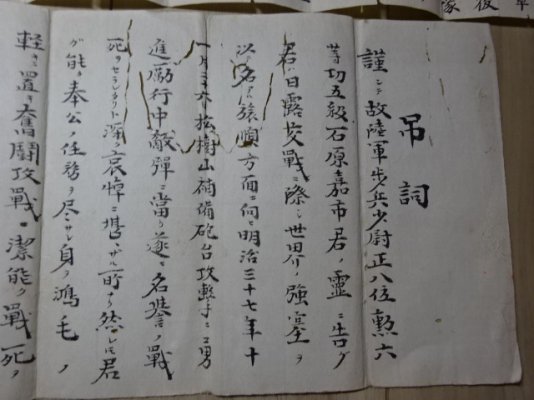 吊詞
謹ンデ故陸軍歩兵少尉正八位勲六
等功五級石原嘉市君ノ霊ニ告グ
君ハ日露交戦ニ際シ世界ノ強塞ヲ
以テ名アル旅順方面ニ向ヒ明治三十七年十
一月三十 松樹山補備砲台攻撃ニ勇
進励行中敵弾ニ当リ遂ニ名誉ノ戦
死ヲセラレタリト深ク哀悼ニ堪ヘザル所ナリ然レドモ君
ガ能ク奉公ノ任務ヲ尽サレ身ヲ鴻毛ノ
軽キニ置キ奮闘攻戦 潔能ク戦死ヲ